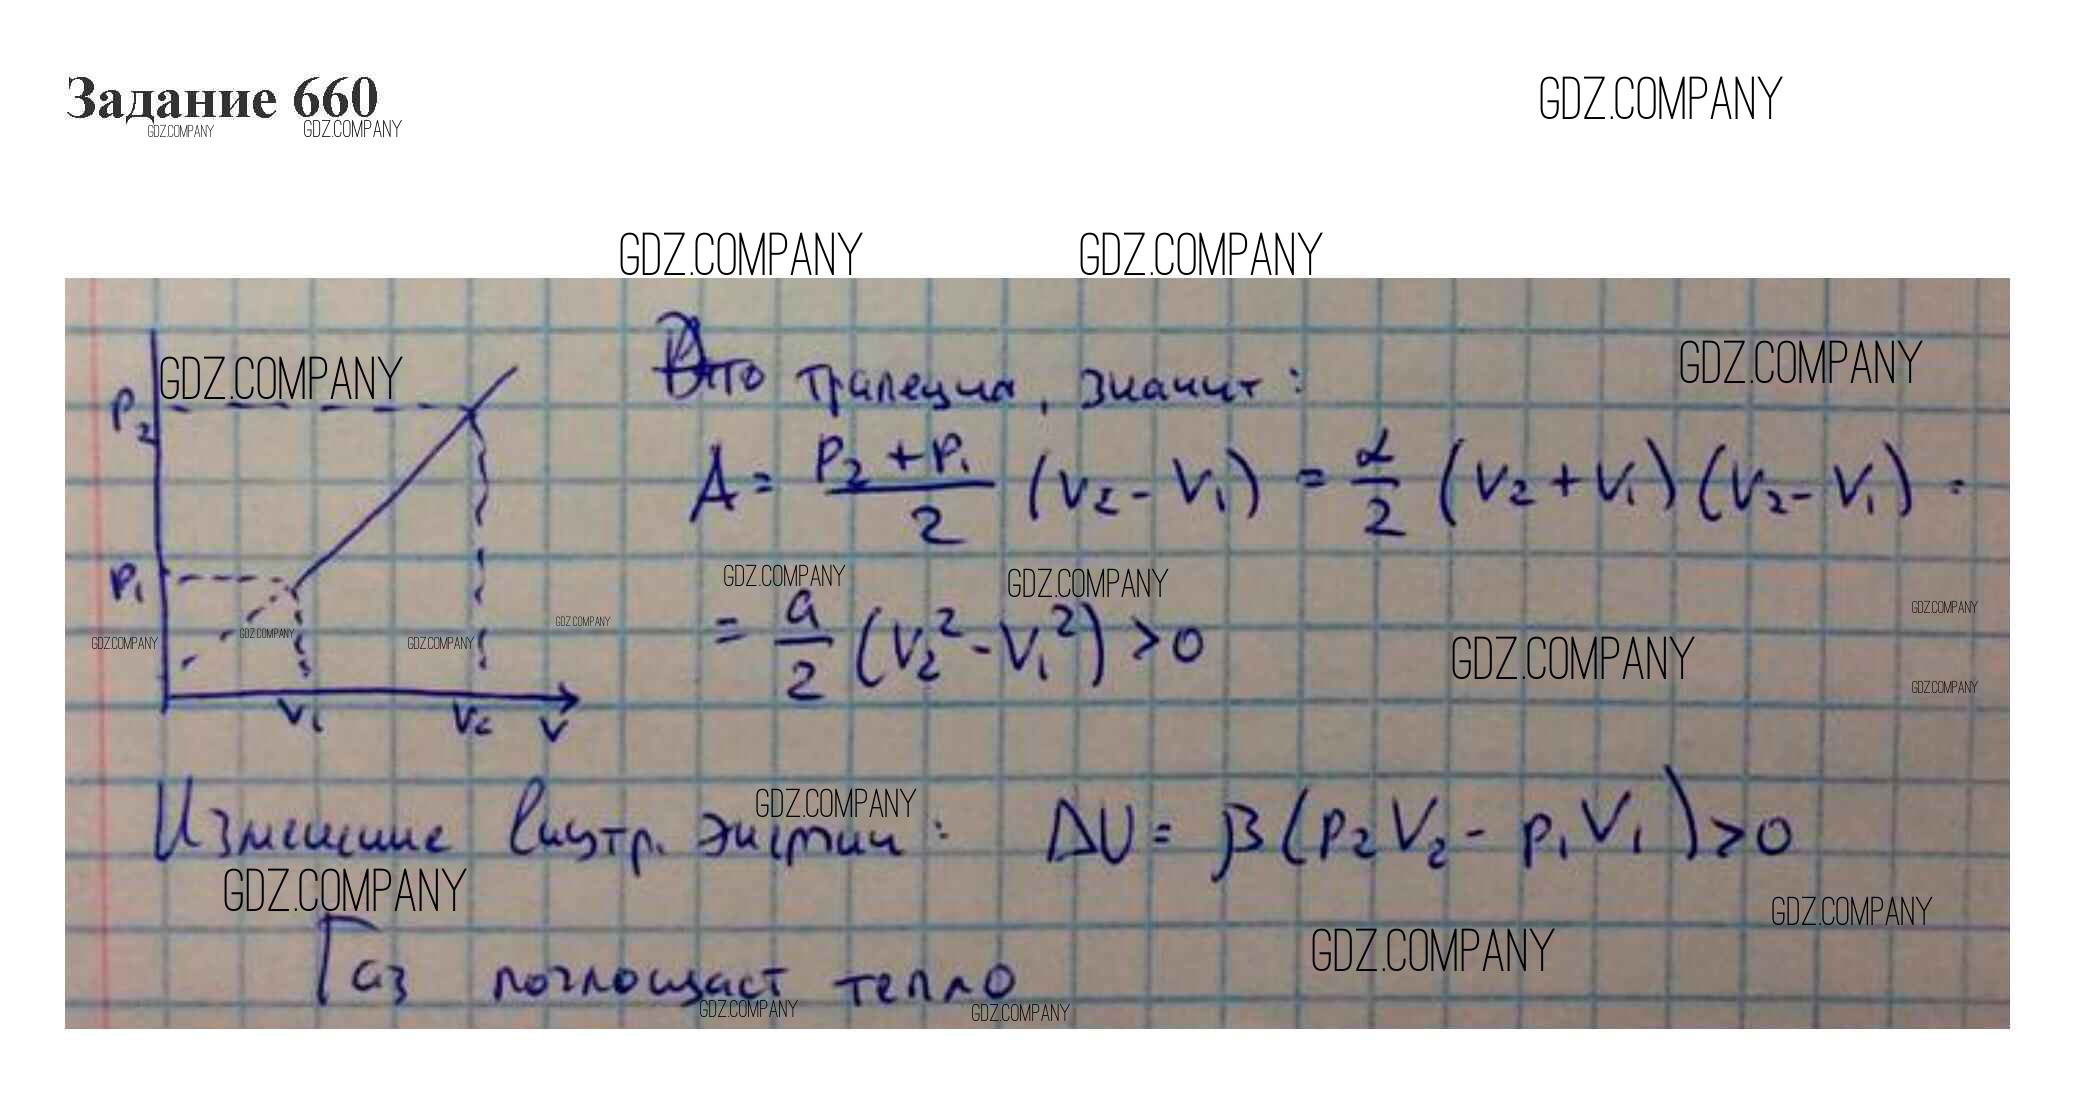 Задание 660
GDZ.COMPANY
GDZ.COMPANY GDZ.COMPANY
GDZ.COMPANY GDZ.COMPANY
GDZ.COMPANY
Это трапеция, значит:
GDZ.COMPANY
P₂
A = (P₂ + P₁)/2 (V₂ - V₁) = α/2 (V₂ + V₁) (V₂ - V₁) =
P₁
GDZ.COMPANY GDZ.COMPANY
= a/2 (V₂² - V₁²) > 0
GDZ.COMPANY GDZ.COMPANY
GDZ.COMPANY GDZ.COMPANY GDZ.COMPANY GDZ.COMPANY
GDZ.COMPANY
V₁ V₂ V
GDZ.COMPANY
Изменение внутр. энергии: ΔU = β (P₂V₂ - P₁V₁) > 0
GDZ.COMPANY GDZ.COMPANY
GDZ.COMPANY
Газ поглощает тепло
GDZ.COMPANY GDZ.COMPANY